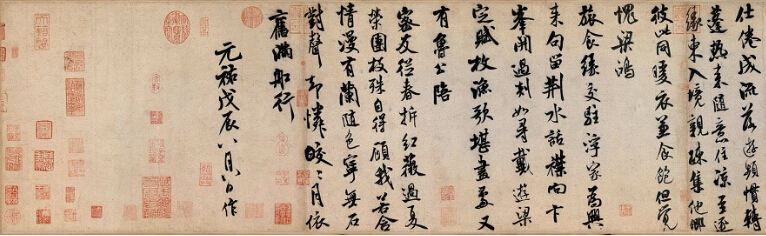 仕倦成流落遊頻慣轉
蓬熱来隨意住涼至逐
緣東入境親踈集他鄉
彼此同暖衣兼食飽但覺
愧梁鴻
旅食緣交駐浮家為興
来句留荊水話襟向卞
峯開過剡如尋戴遊梁
定賦枚漁歌堪畫處又
有魯公陪
密友從春拆紅薇過夏
榮團枝殊自得顧我若含
情漫有蘭隨色寧無石
對聲却憐皎々月依
舊滿船行
元祐戊辰八月八日作